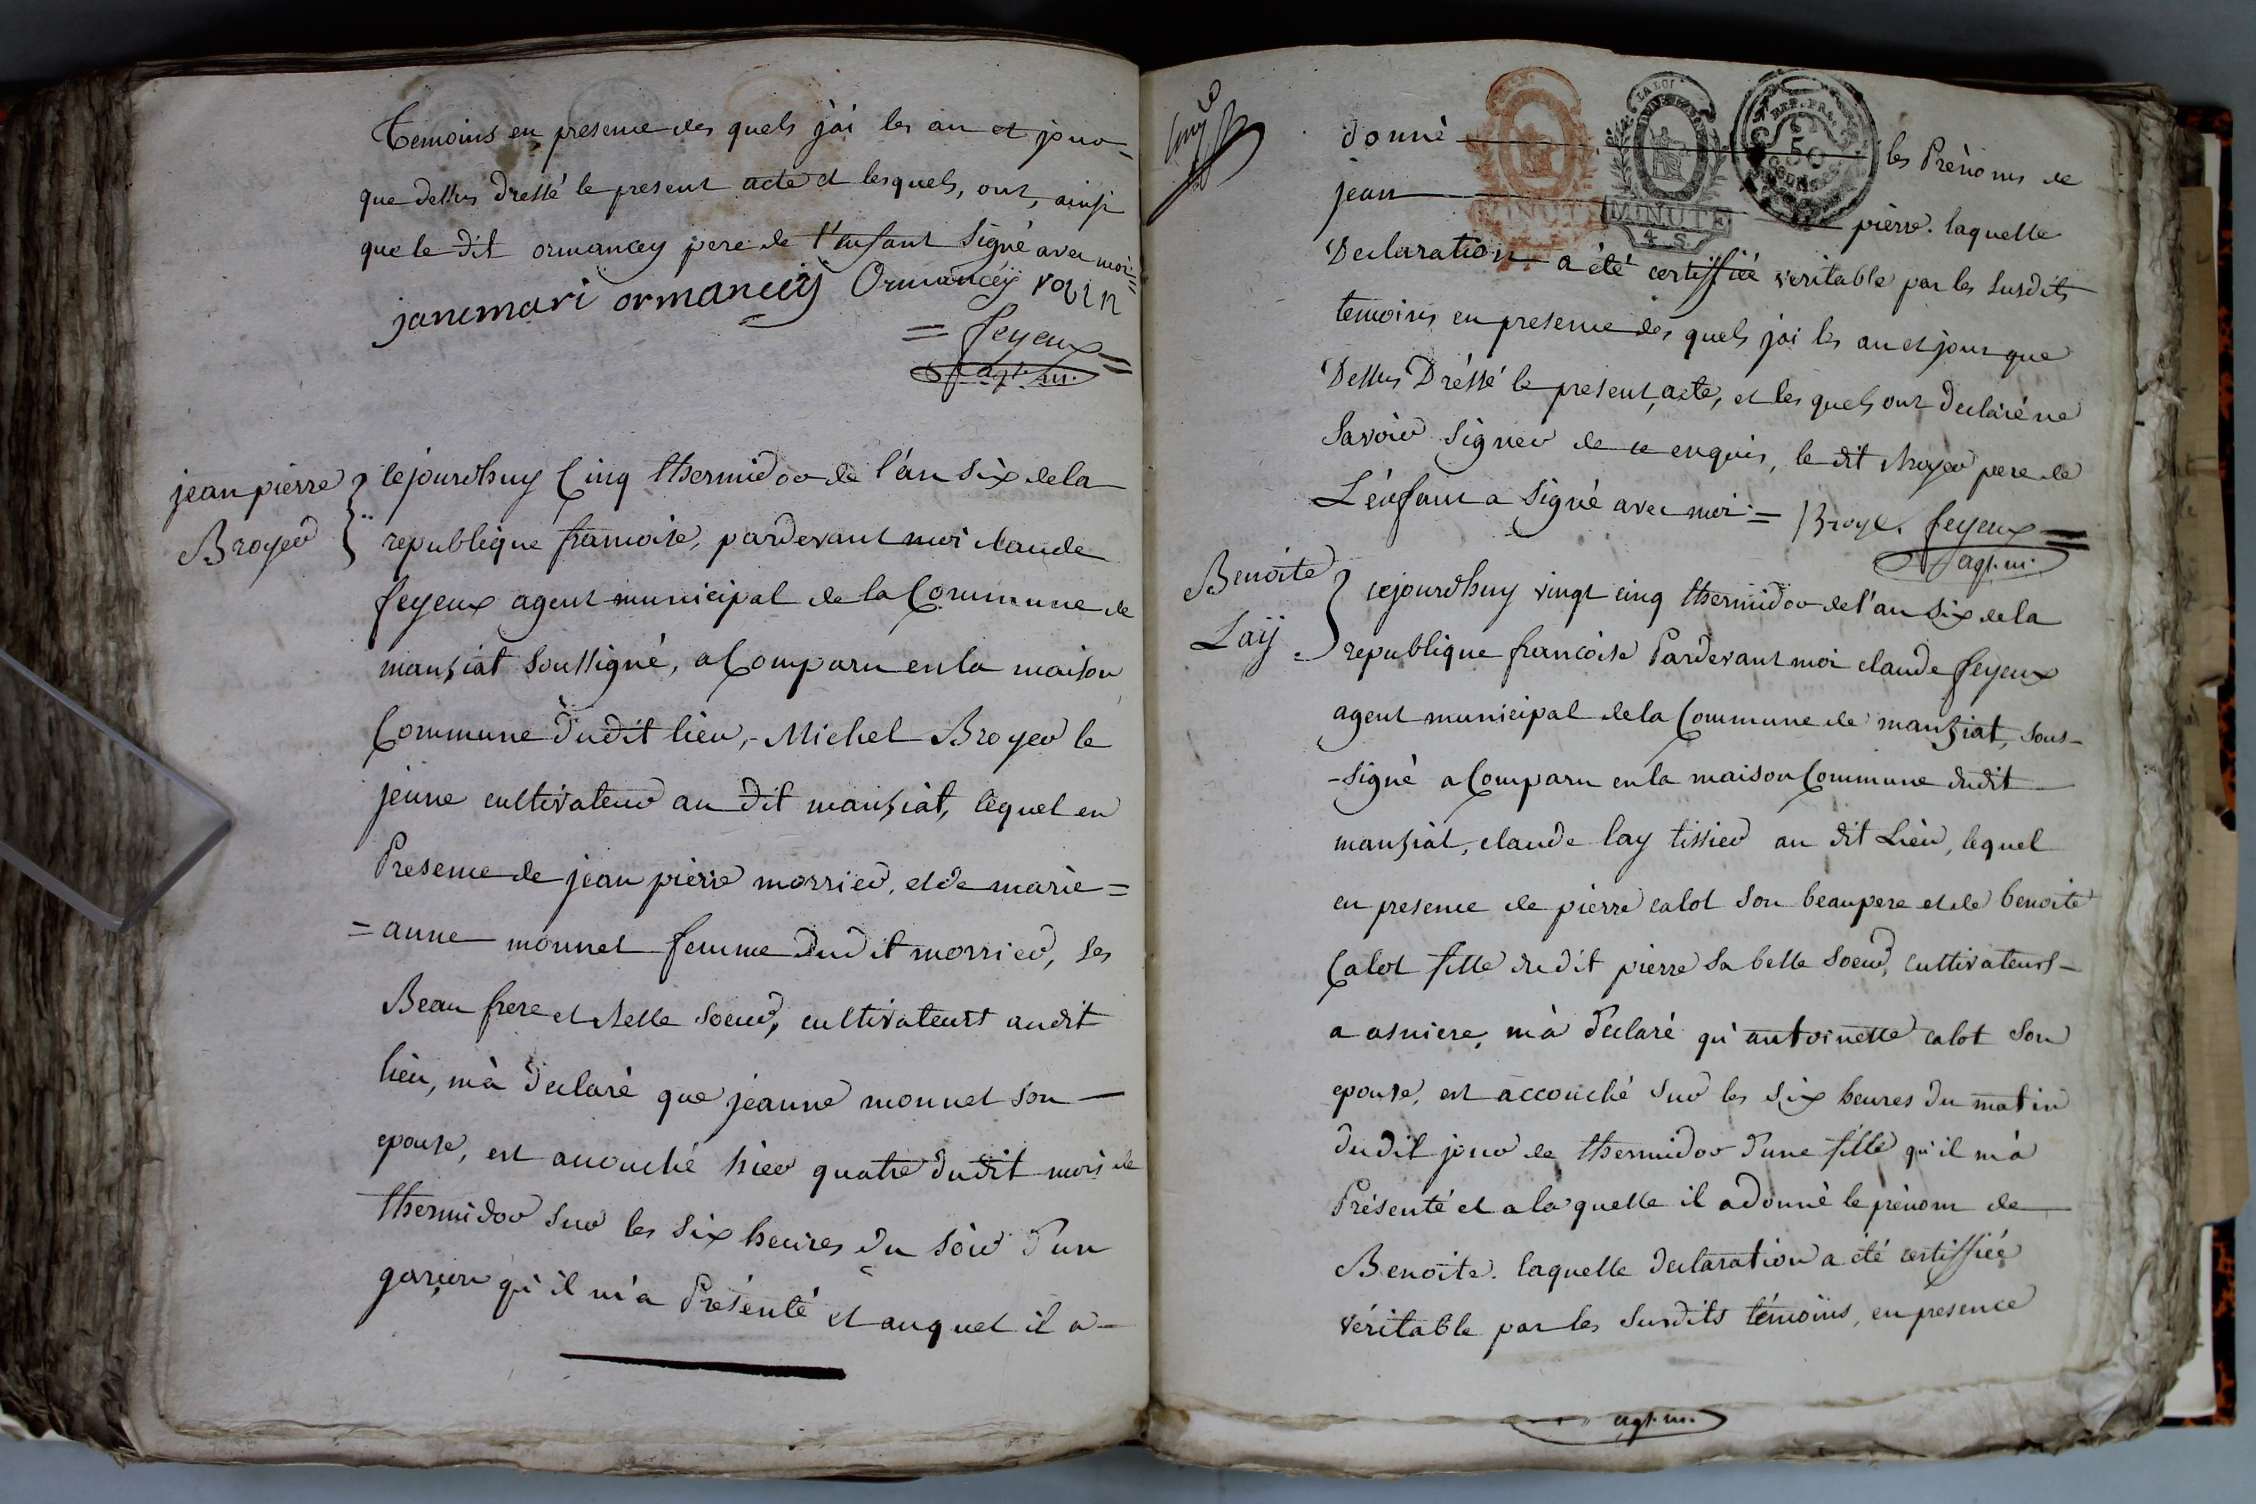 Temoins en presence des quels j'ai les an et jour
que dessus dressé le present acte et lesquels, ont, ainsi
que le dit ormancey pere de l'enfant signé avec moi =
janemari ormancey Ormancéÿ robin
= feyeux =
agt. m.
jean pierre
Broyer
cejourdhuy Cinq thermidor de l'an six de la
republique francoise, pardevant moi claude
feyeux agent municipal de la Commune de
manziat soussigné, a Comparu en la maison
Commune dudit lieu, - Michel Broyer le
jeune cultivateur au dit manziat, lequel en
Presence de jean pierre morrier, et de marie =
= anne monnet femme dudit morrier, ses
Beau frere et Belle soeur, cultivateurs audit
lieu, m'à declaré que jeanne monnet son
epouse, est accouché hier quatre dudit mois de
thermidor sur les six heures du soir d'un
garçon qu'il m'a Présenté et auquel il a
donné les Prénoms de
LA LOI
REP. FRA.
50
jean pièrre. laquelle
MINUTE
MINUTE
4 S
Declaration a été certiffiée veritable par les susdits
temoins en presence des quels j'ai les an et jour que
Dessus Dréssé le present, acte, et les quels ont declaré ne
savoir signer de ce enquis, le dit Broyer pere de
L'énfant a signé avec moi = Broye. feyeux =
agt. m.
Benoite
Laÿ
cejourdhuy vingt cinq thermidor de l'an six de la
republique francoise Pardevant moi claude feyeux
agent municipal de la Commune de manziat, sous-
-signé a Comparu en la maison Commune dudit
manziat, claude lay tissier au dit Lieu, lequel
en presence de pierre calot son beaupere et de benoite
Calot fille dudit pierre sa belle soeur, cultivateurs
a asniere, m'à declaré qu'antoinette calot son
epouse, est accouché sur les six heures du matin
dudit jour de thermidor d'une fille qu'il m'à
Présenté et a laquelle il a donné le prénom de
Benoite. laquelle declaration a été certiffiée
véritable par les susdits témoins, en presence
agt. m.